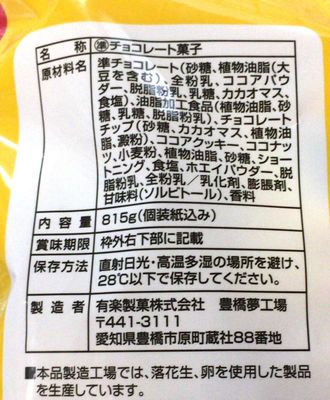 名 称 ㊜チョコレート菓子
原材料名 準チョコレート(砂糖、植物油脂(大
豆を含む)、全粉乳、ココアパウ
ダー、脱脂粉乳、乳糖、カカオマス、
食塩)、油脂加工食品(植物油脂、砂
糖、乳糖、脱脂粉乳)、チョコレート
チップ(砂糖、カカオマス、植物油
脂、澱粉)、ココアクッキー、ココナッ
ツ、小麦粉、植物油脂、砂糖、ショー
トニング、食塩、ホエイパウダー、脱
脂粉乳、全粉乳/乳化剤、膨脹剤、
甘味料(ソルビトール)、香料
内 容 量 815g(個装紙込み)
賞味期限 枠外右下部に記載
保存方法 直射日光・高温多湿の場所を避け、
28℃以下で保存してください。
製 造 者 有楽製菓株式会社 豊橋夢工場
〒441-3111
愛知県豊橋市原町蔵社88番地
■本品製造工場では、落花生、卵を使用した製品
を生産しています。